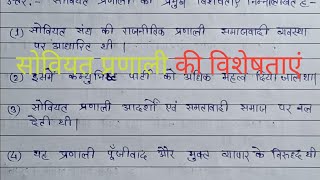 उत्तर:- सोवियत प्रणाली की प्रमुख विशेषताएँ निम्नलिखित है -
(1) सोवियत संघ की राजनीतिक प्रणाली समाजवादी व्यवस्था
पर आधारित थी।
सोवियत प्रणाली की विशेषताएं
(2) इसमें कम्युनिस्ट पार्टी को अधिक महत्व दिया जाता था।
(3) सोवियत प्रणाली आदर्शों एवं समतावादी समाज पर बल
देती थी।
(4) यह प्रणाली पूँजीवाद और मुक्त व्यापार के विरुद्ध थी